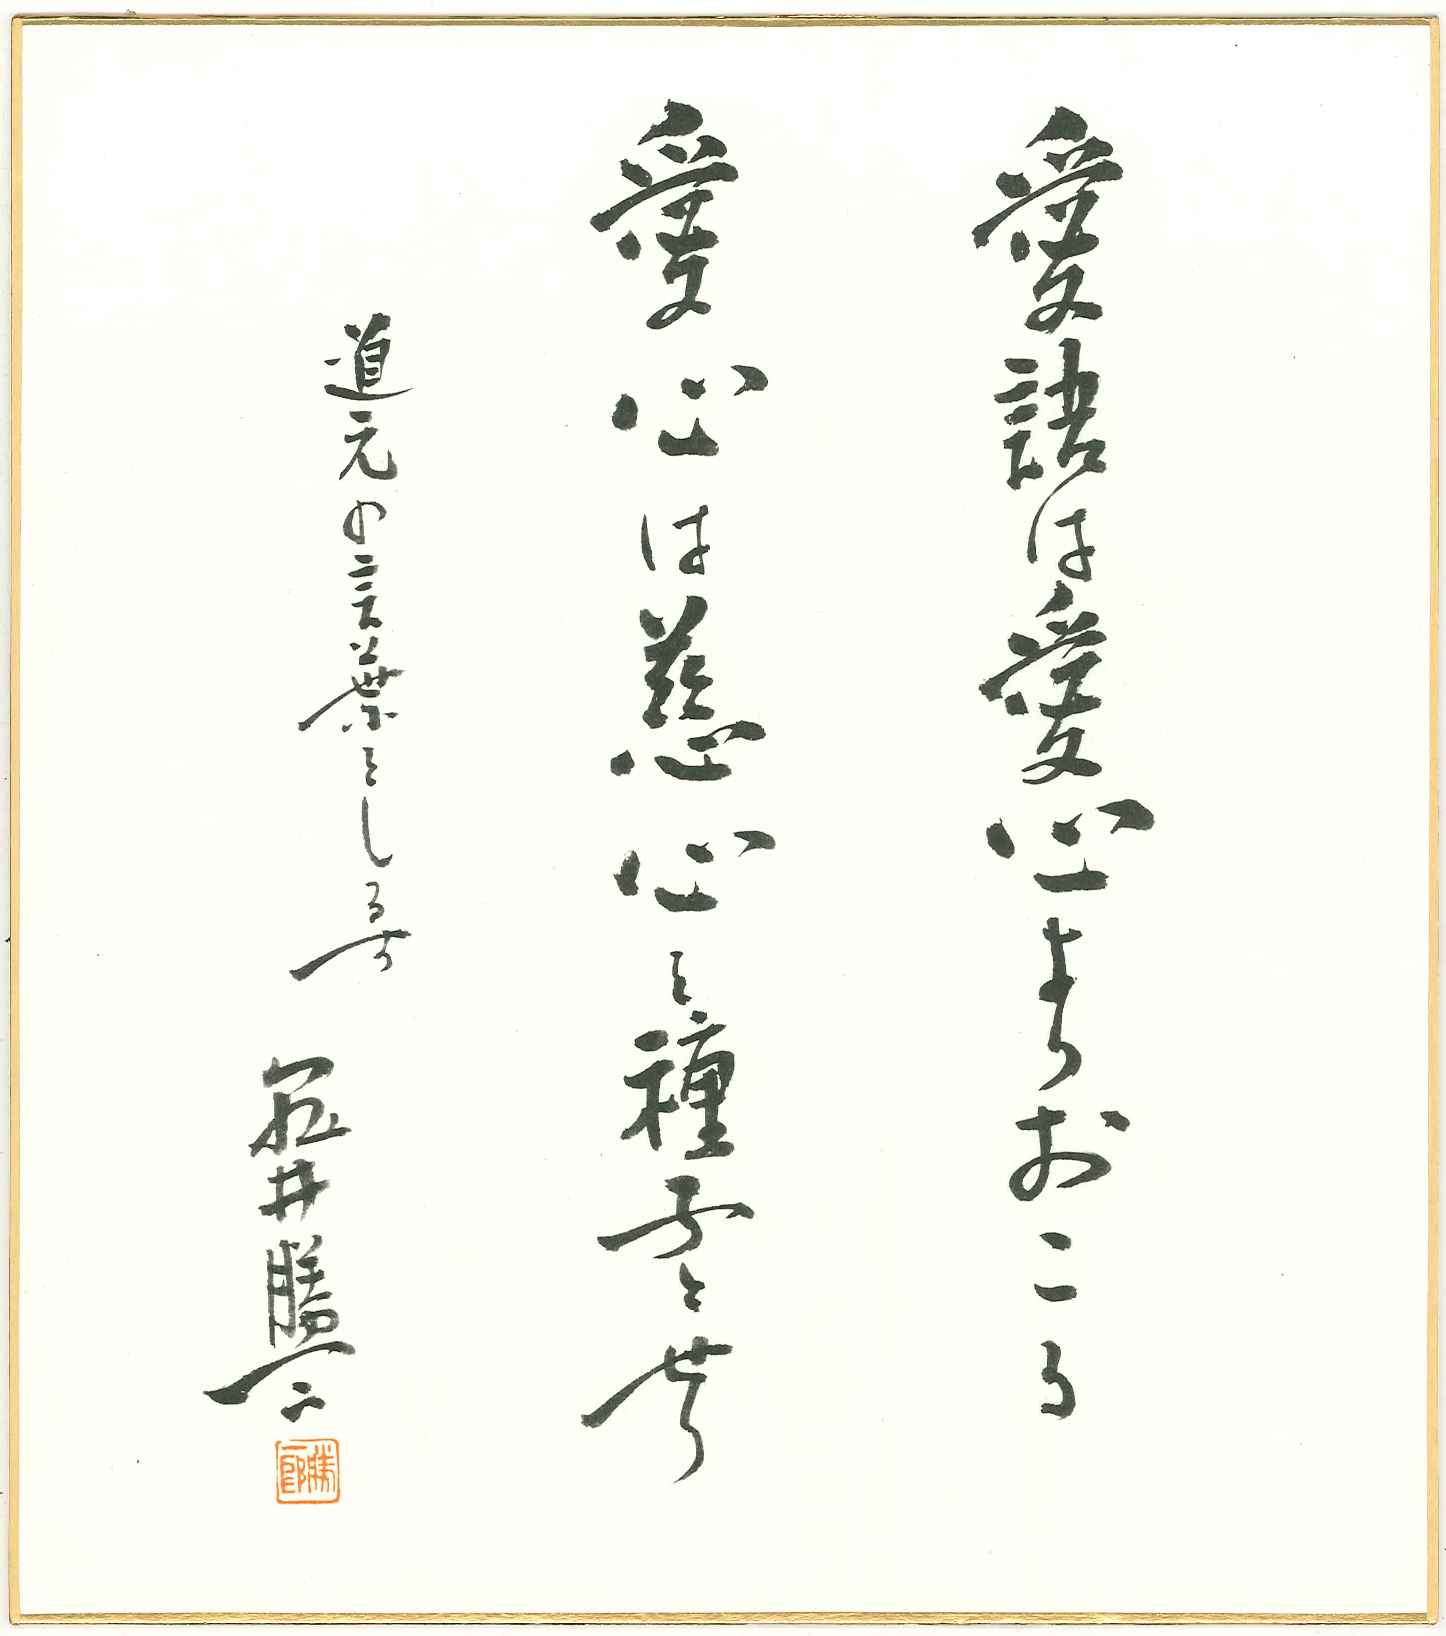 愛語は愛心よりおこる
愛心は慈心を種子とせり
道元の言葉をしるす
亀井勝一郎
勝一郎